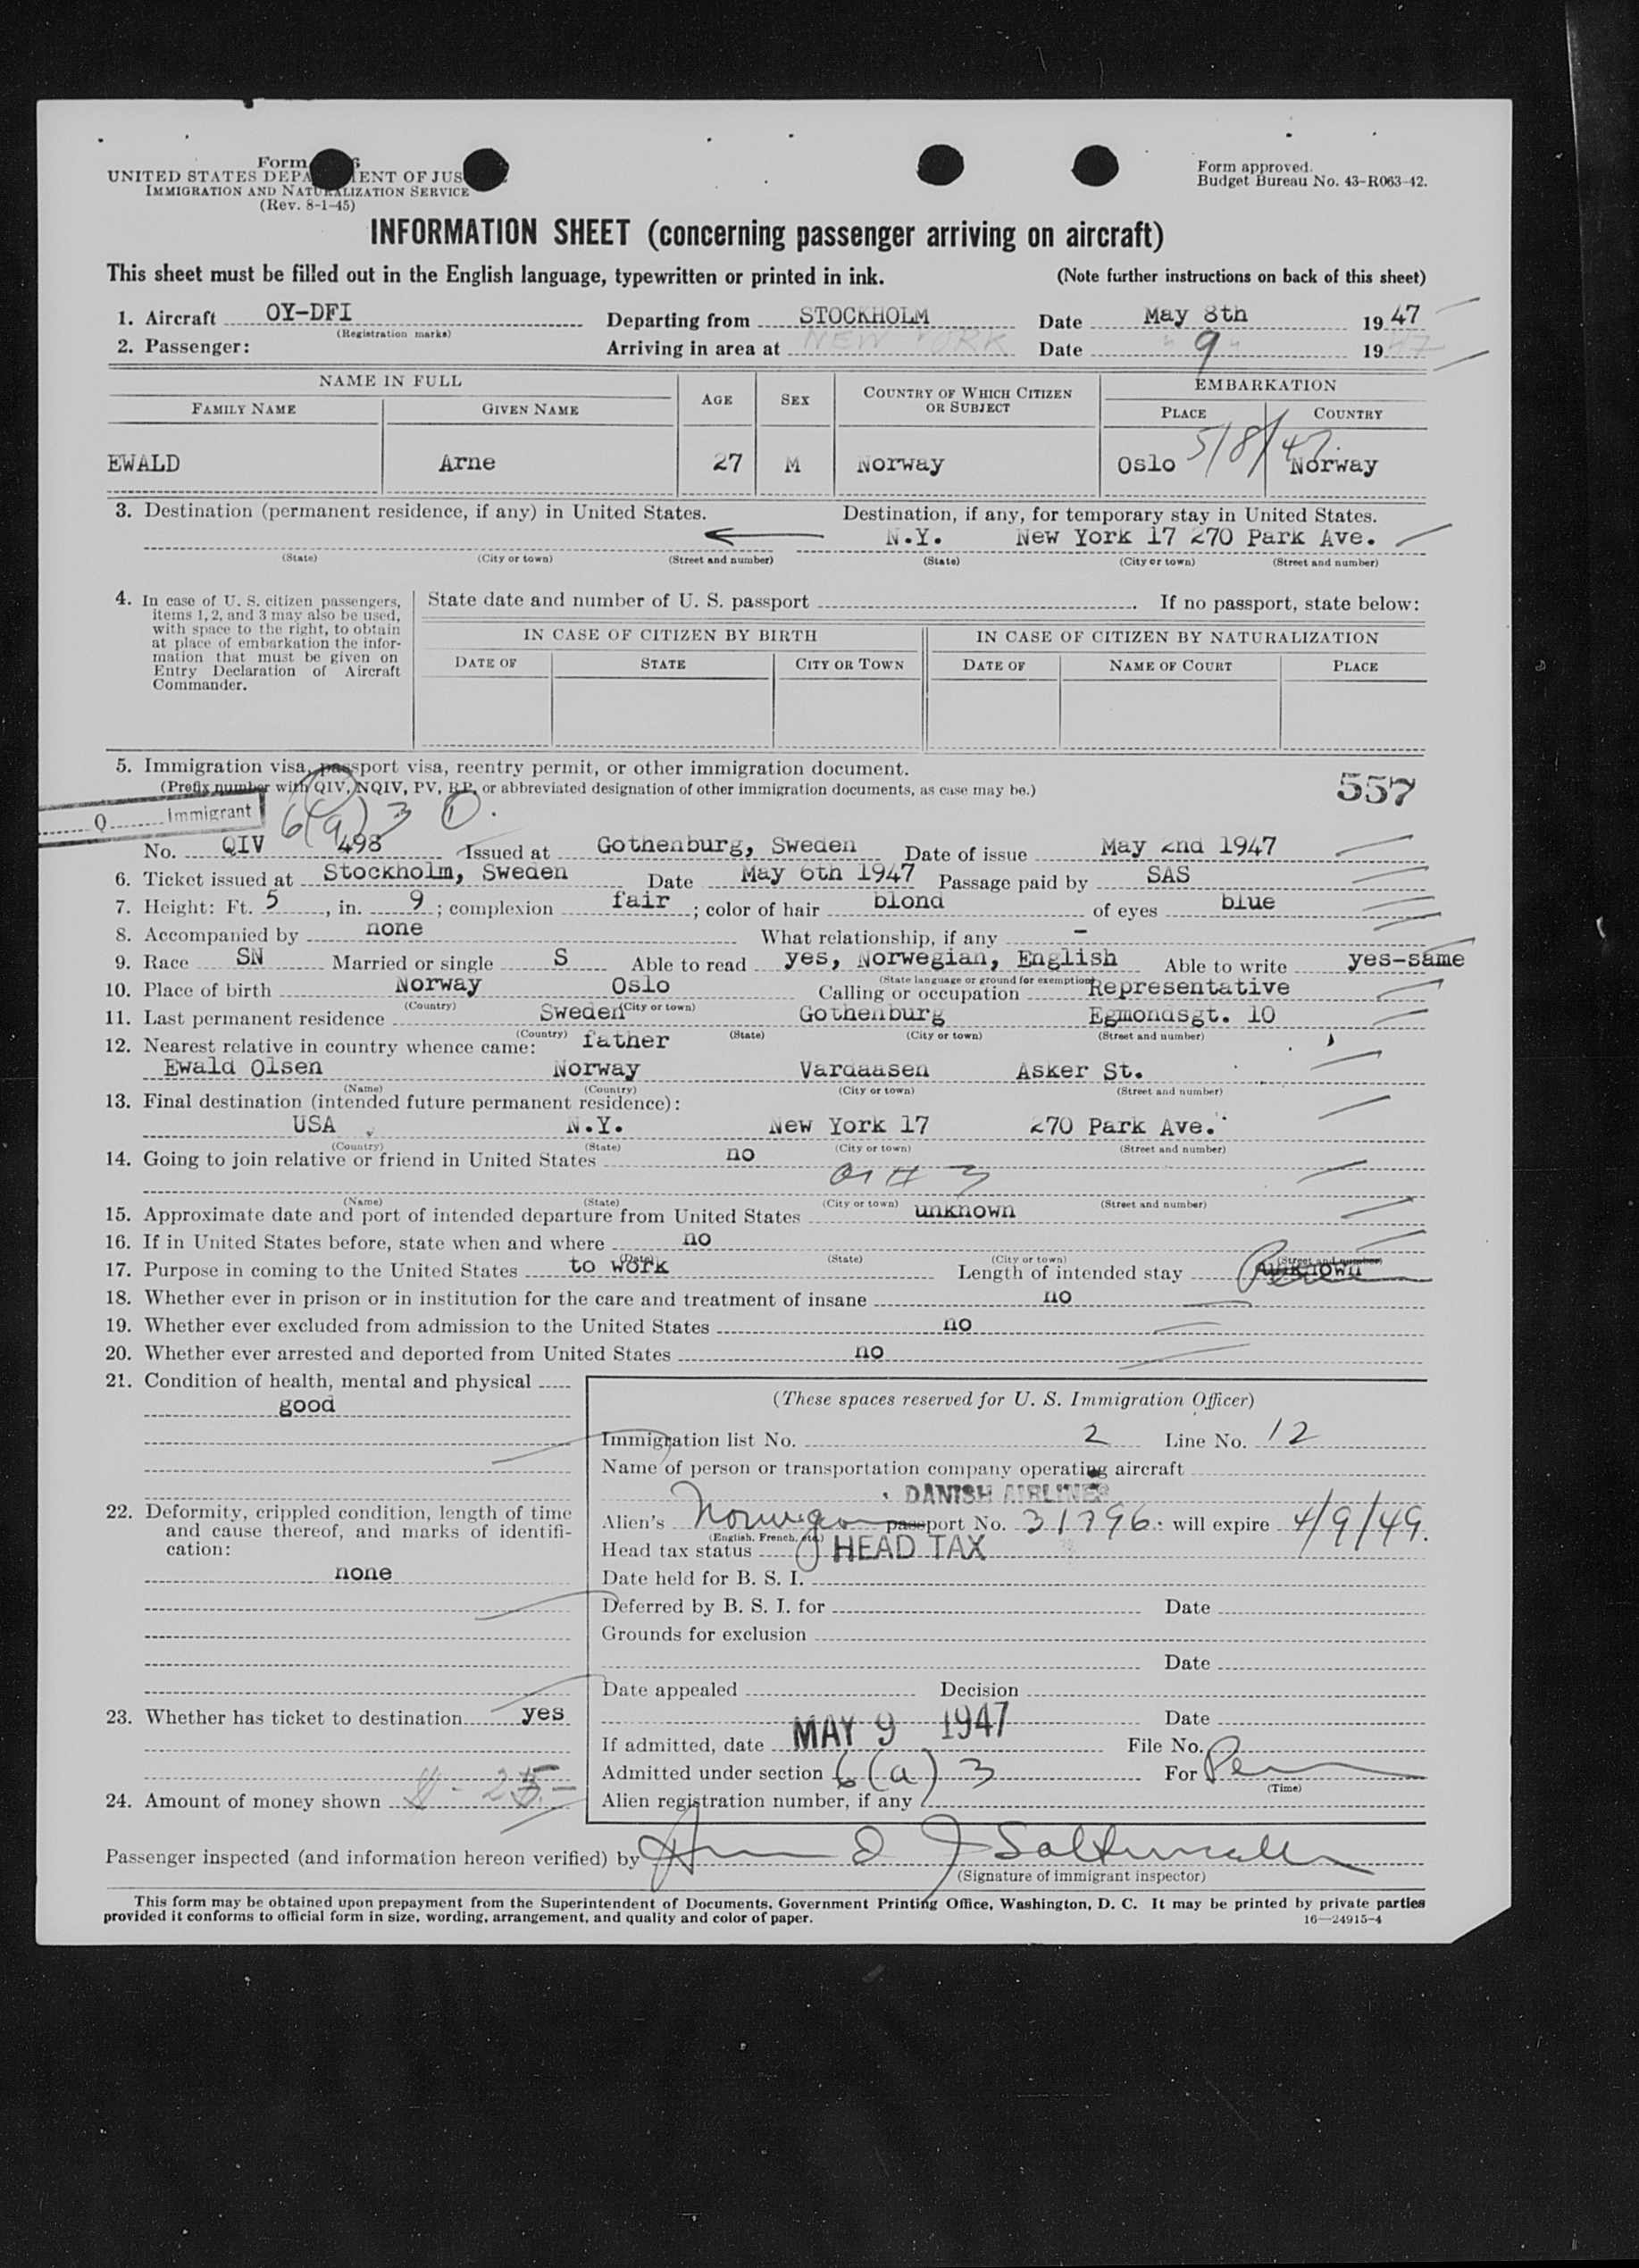 Form
UNITED STATES DEPA ENT OF JUS
IMMIGRATION AND NATURALIZATION SERVICE
(Rev. 8-1-45)
Form approved.
Budget Bureau No. 43-R063-42.
INFORMATION SHEET (concerning passenger arriving on aircraft)
This sheet must be filled out in the English language, typewritten or printed in ink. (Note further instructions on back of this sheet)
1. Aircraft OY-DFI Departing from STOCKHOLM Date May 8th 1947
(Registration marks)
2. Passenger: Arriving in area at NEW YORK Date " 9 " 1947
NAME IN FULL AGE SEX COUNTRY OF WHICH CITIZEN OR SUBJECT EMBARKATION
FAMILY NAME GIVEN NAME PLACE COUNTRY
5/8/47.
EWALD Arne 27 M Norway Oslo Norway
3. Destination (permanent residence, if any) in United States. Destination, if any, for temporary stay in United States.
N.Y. New York 17 270 Park Ave.
(State) (City or town) (Street and number) (State) (City or town) (Street and number)
4. In case of U. S. citizen passengers, items 1, 2, and 3 may also be used, with space to the right, to obtain at place of embarkation the information that must be given on Entry Declaration of Aircraft Commander.
State date and number of U. S. passport . If no passport, state below:
IN CASE OF CITIZEN BY BIRTH IN CASE OF CITIZEN BY NATURALIZATION
DATE OF STATE CITY OR TOWN DATE OF NAME OF COURT PLACE
5. Immigration visa, passport visa, reentry permit, or other immigration document.
(Prefix number with QIV, NQIV, PV, RP, or abbreviated designation of other immigration documents, as case may be.) 557
Q Immigrant 6(a)3
No. QIV 498 Issued at Gothenburg, Sweden Date of issue May 2nd 1947
6. Ticket issued at Stockholm, Sweden Date May 6th 1947 Passage paid by SAS
7. Height: Ft. 5, in. 9; complexion fair; color of hair blond of eyes blue
8. Accompanied by none What relationship, if any -
9. Race SN Married or single S Able to read yes, Norwegian, English Able to write yes-same
(State language or ground for exemption)
10. Place of birth Norway Oslo Calling or occupation Representative
(Country) (City or town)
11. Last permanent residence Sweden Gothenburg Egmondsgt. 10
(Country) (State) (City or town) (Street and number)
12. Nearest relative in country whence came: father
Ewald Olsen Norway Vardaasen Asker St.
(Name) (Country) (City or town) (Street and number)
13. Final destination (intended future permanent residence):
USA N.Y. New York 17 270 Park Ave.
(Country) (State) (City or town) (Street and number)
14. Going to join relative or friend in United States no
(Name) (State) (City or town) (Street and number)
15. Approximate date and port of intended departure from United States unknown
16. If in United States before, state when and where no
(Date) (State) (City or town) (Street and number)
17. Purpose in coming to the United States to work Length of intended stay unknown
18. Whether ever in prison or in institution for the care and treatment of insane no
19. Whether ever excluded from admission to the United States no
20. Whether ever arrested and deported from United States no
21. Condition of health, mental and physical
good
22. Deformity, crippled condition, length of time and cause thereof, and marks of identification:
none
23. Whether has ticket to destination yes
24. Amount of money shown $ - 25 -
(These spaces reserved for U. S. Immigration Officer)
Immigration list No. 2 Line No. 12
Name of person or transportation company operating aircraft
DANISH AIRLINES
Alien's Norwegian passport No. 31796 will expire 4/9/49.
(English, French, etc.)
Head tax status HEAD TAX
Date held for B. S. I.
Deferred by B. S. I. for Date
Grounds for exclusion
Date
Date appealed Decision
Date
If admitted, date MAY 9 1947 File No.
Admitted under section 6(a)3 For Per
(Time)
Alien registration number, if any
Passenger inspected (and information hereon verified) by
(Signature of immigrant inspector)
This form may be obtained upon prepayment from the Superintendent of Documents, Government Printing Office, Washington, D. C. It may be printed by private parties
provided it conforms to official form in size, wording, arrangement, and quality and color of paper. 16—24915-4